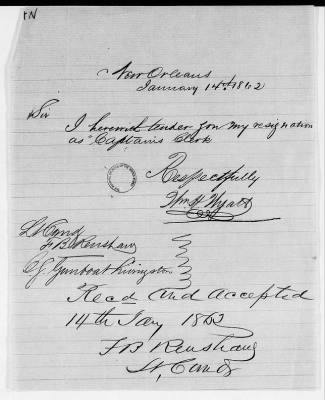 New Orleans
January 14th 1862
Sir
I herewith tender you my resignation
as "Captains Clerk
Respectfully
Wm H Wyatt
Lt Comd
F B Renshaw
C.S. Gunboat Livingston
Read and accepted
14th Jany 1862
F B Renshaw
Lt, Comdg